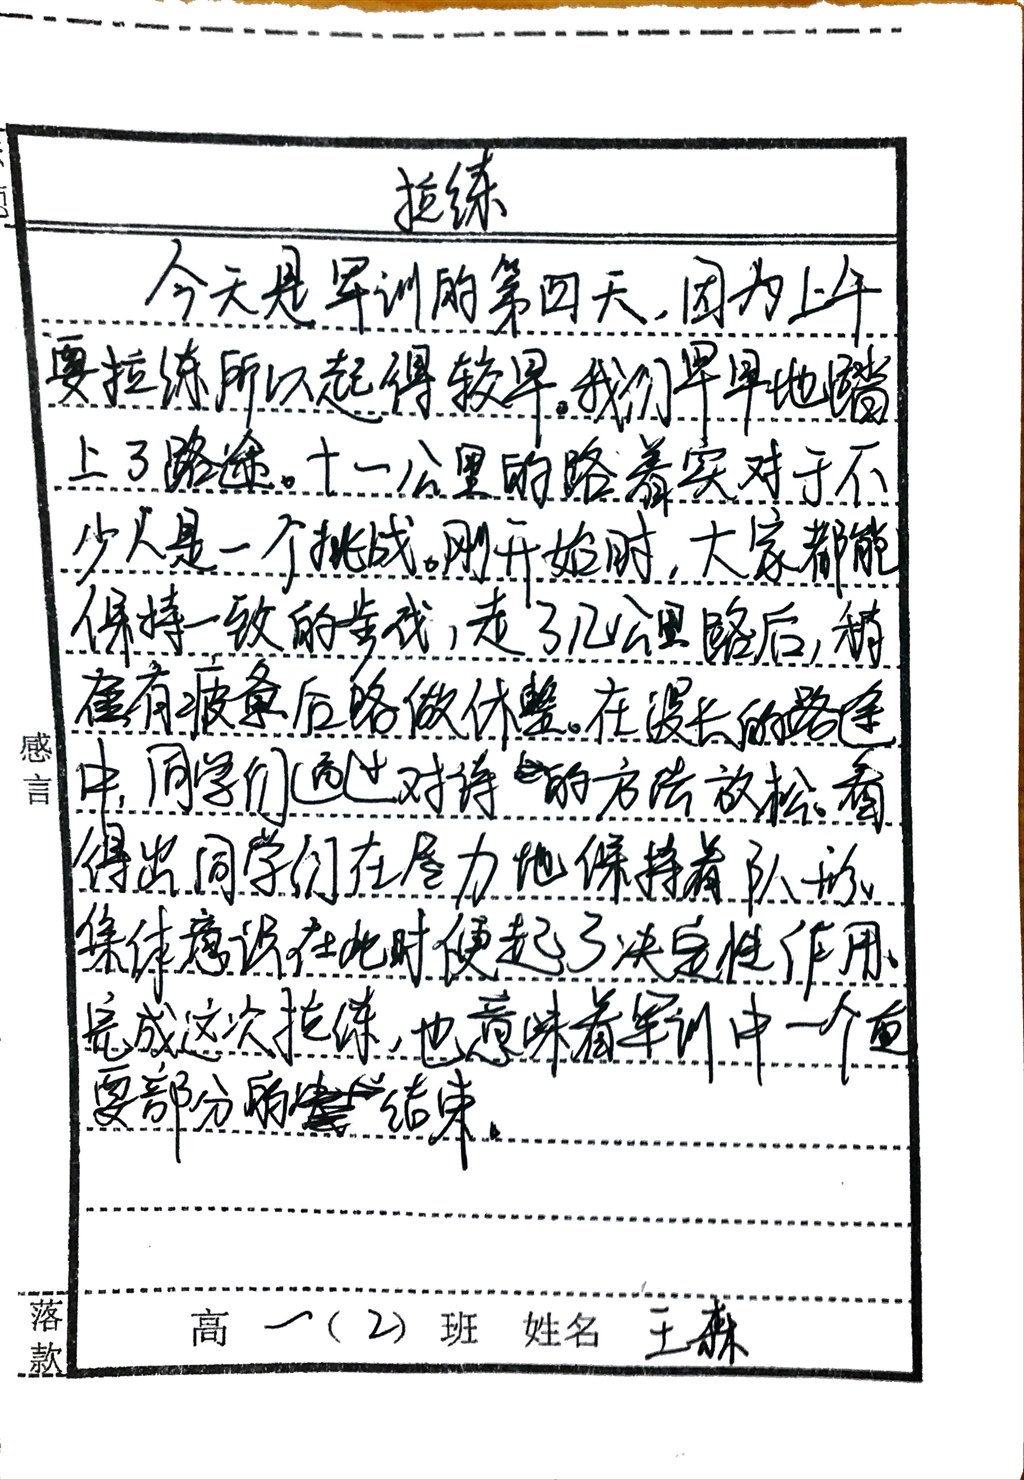 拉练
今天是军训的第四天,因为上午
要拉练所以起得较早。我们早早地踏
上了路途。十一公里的路着实对于不
少人是一个挑战。刚开始时,大家都能
保持一致的步伐,走了几公里路后,稍
有疲惫后略做休整。在漫长的路途
中,同学们通过对诗的方法放松。看
得出同学们在尽力地保持着队形。
集体意识在此时便起了决定性作用。
完成这次拉练,也意味着军训中一个重
要部分的结束。
感言
落款
高一(2)班 姓名 王森